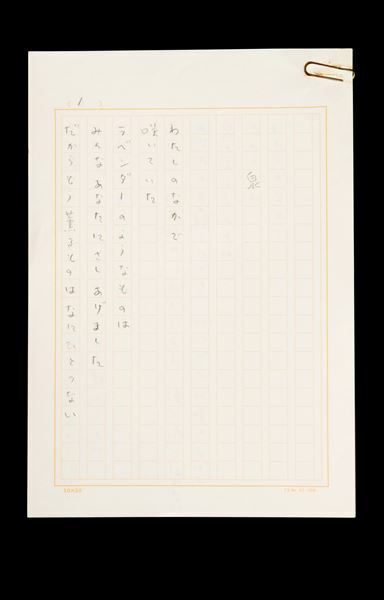 (1)
泉
わたしのなかで
咲いていた
ラベンダーのようなものは
みんなあなたにさしあげました
だからもう薫るものはなにひとつない
20×20